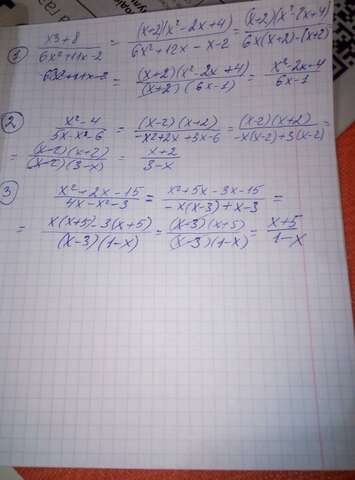 ① x3+8 / 6x²+11x-2 = (x+2)(x²-2x+4) / 6x²+12x-x-2 = (x-2)(x²-2x+4) / 6x(x+2)-(x+2)
= (x+2)(x²-2x+4) / (x+2)(6x-1) = x²-2x-4 / 6x-1
② x²-4 / 5x-x²-6 = (x-2)(x+2) / -x²+2x+3x-6 = (x-2)(x+2) / -x(x-2)+3(x-2) =
= (x-2)(x+2) / (x-2)(3-x) = x+2 / 3-x
③ x²+2x-15 / 4x-x²-3 = x²+5x-3x-15 / -x(x-3)+x-3 =
= x(x+5)-3(x+5) / (x-3)(1-x) = (x-3)(x+5) / (x-3)(1-x) = x+5 / 1-x